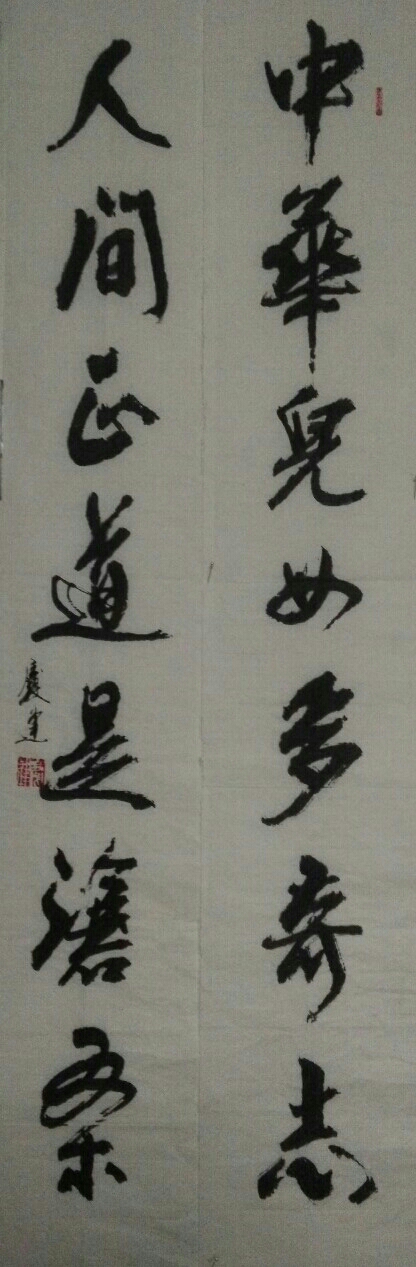 中華兒女多奇志
人间正道是滄桑